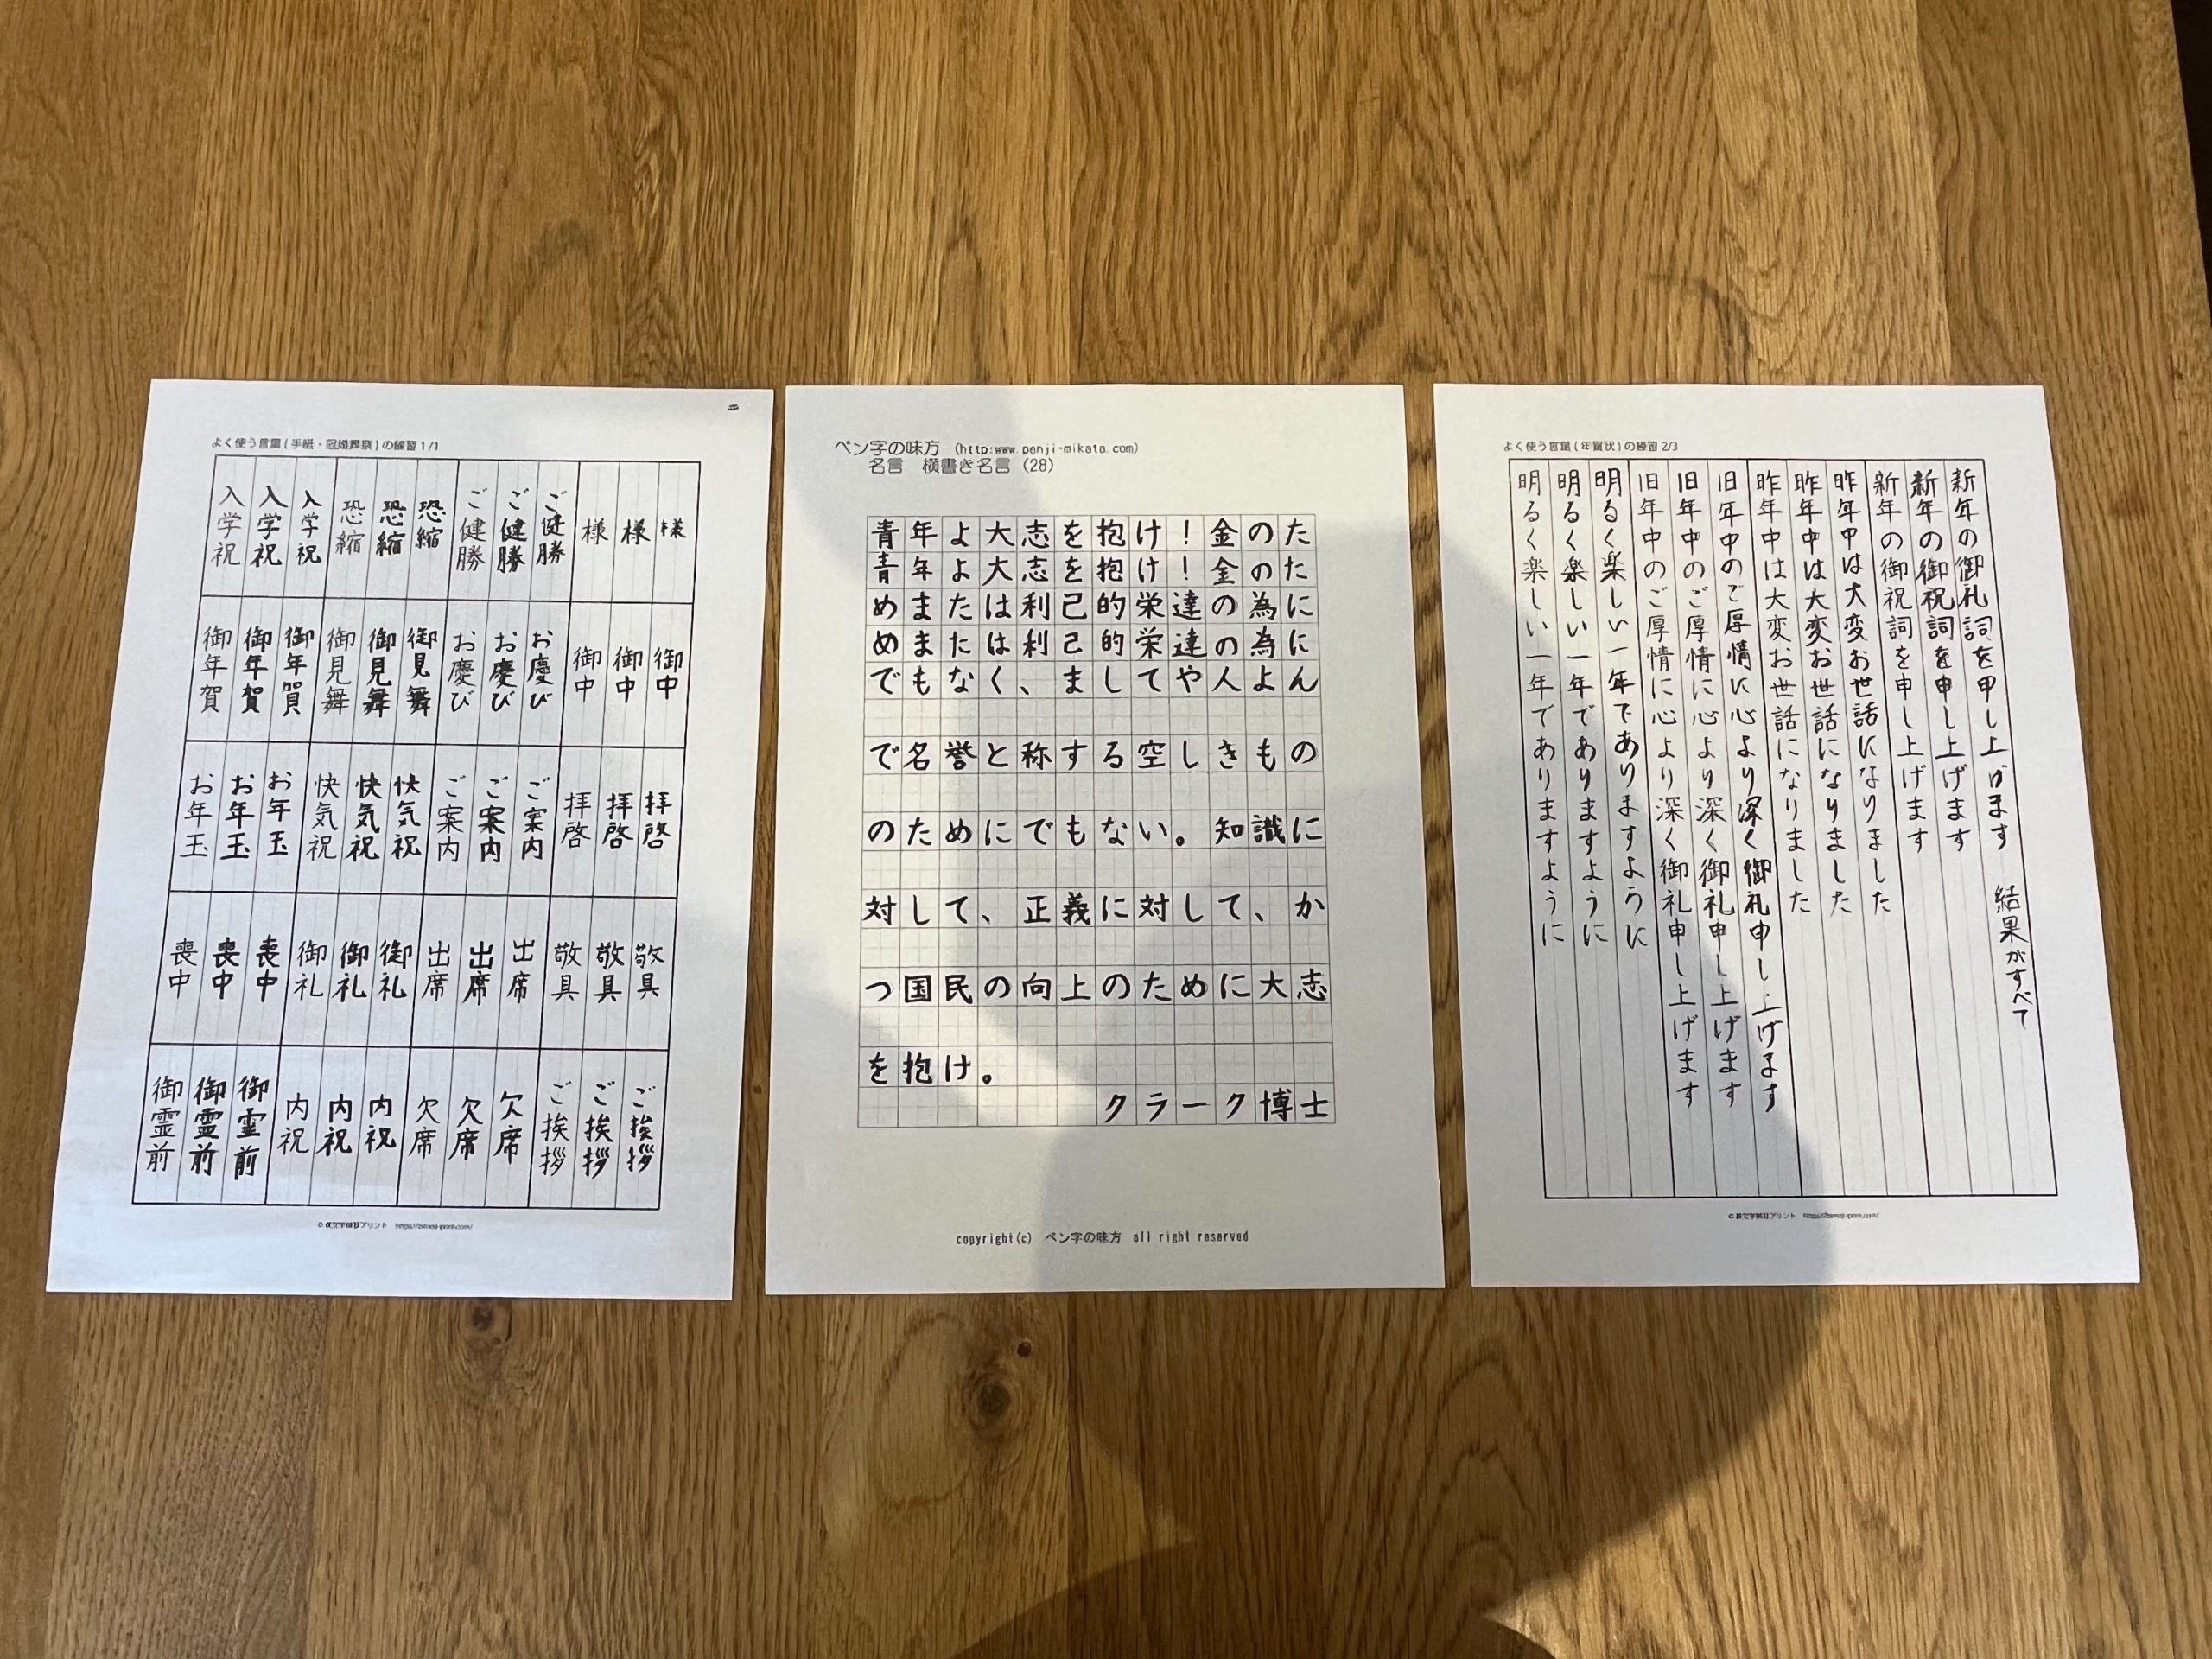 よく使う言葉(手紙・冠婚葬祭)の練習 1/1
様 御中 拝啓 敬具 ご挨拶
様 御中 拝啓 敬具 ご挨拶
様 御中 拝啓 敬具 ご挨拶
ご健勝 お慶び ご案内 出席 欠席
ご健勝 お慶び ご案内 出席 欠席
ご健勝 お慶び ご案内 出席 欠席
恐縮 御見舞 快気祝 御礼 内祝
恐縮 御見舞 快気祝 御礼 内祝
恐縮 御見舞 快気祝 御礼 内祝
入学祝 御年賀 お年玉 喪中 御霊前
入学祝 御年賀 お年玉 喪中 御霊前
入学祝 御年賀 お年玉 喪中 御霊前
©美文字練習プリント
ペン字の味方 (http:www.penji-mikata.com)
名言 横書き名言 (28)
青年よ大志を抱け!金のた
青年よ大志を抱け!金のた
めまたは利己的栄達の為に
めまたは利己的栄達の為に
でもなく、ましてや人よん
で名誉と称する空しきもの
のためにでもない。知識に
対して、正義に対して、か
つ国民の向上のために大志
を抱け。
クラーク博士
copyright(c) ペン字の味方 all right reserved
よく使う言葉(年賀状)の練習 2/3
結果がすべて
新年の御礼詞を申し上がます
新年の御祝詞を申し上げます
新年の御祝詞を申し上げます
昨年中は大変お世話になりました
昨年中は大変お世話になりました
昨年中は大変お世話になりました
旧年中のご厚情に心より深く御礼申し上げます
旧年中のご厚情に心より深く御礼申し上げます
旧年中のご厚情に心より深く御礼申し上げます
明るく楽しい一年でありますように
明るく楽しい一年でありますように
明るく楽しい一年でありますように
©美文字練習プリント